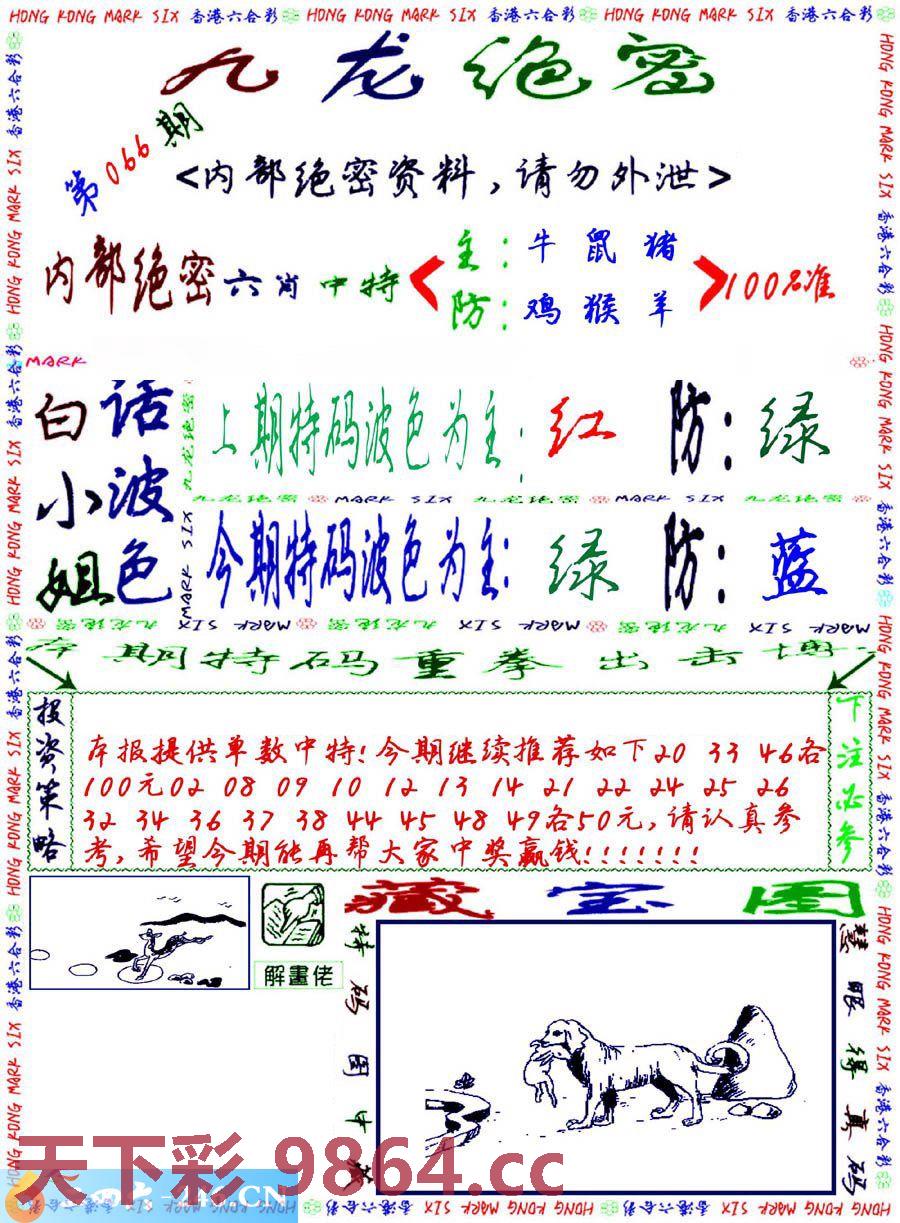 HONG KONG MARK SIX 香港六合彩 HONG KONG MARK SIX 香港六合彩 HONG KONG MARK SIX 香港六合彩
九龙绝密
第066期
<内部绝密资料,请勿外泄>
内部绝密六肖中特
主:牛 鼠 猪
防:鸡 猴 羊
100%准
MARK
白话小姐
波色
九龙绝密
MARK SIX
上期特码波色为主:红 防:绿
九龙绝密 MARK SIX 九龙绝密 MARK SIX 九龙绝密
今期特码波色为主:绿 防:蓝
MARK SIX 九龙绝密 MARK SIX 九龙绝密 MARK SIX 九龙绝密
本期特码重拳出击博
投资策略
本报提供单数中特!今期继续推荐如下20 33 46各
100元02 08 09 10 12 13 14 21 22 24 25 26
32 34 36 37 38 44 45 48 49各50元,请认真参
考,希望今期能再帮大家中奖赢钱!!!!!!!
下注必参
解畫佬
藏宝图
特码图中藏
慧眼得真码
天下彩 9864.cc
HONG KONG MARK SIX 香港六合彩